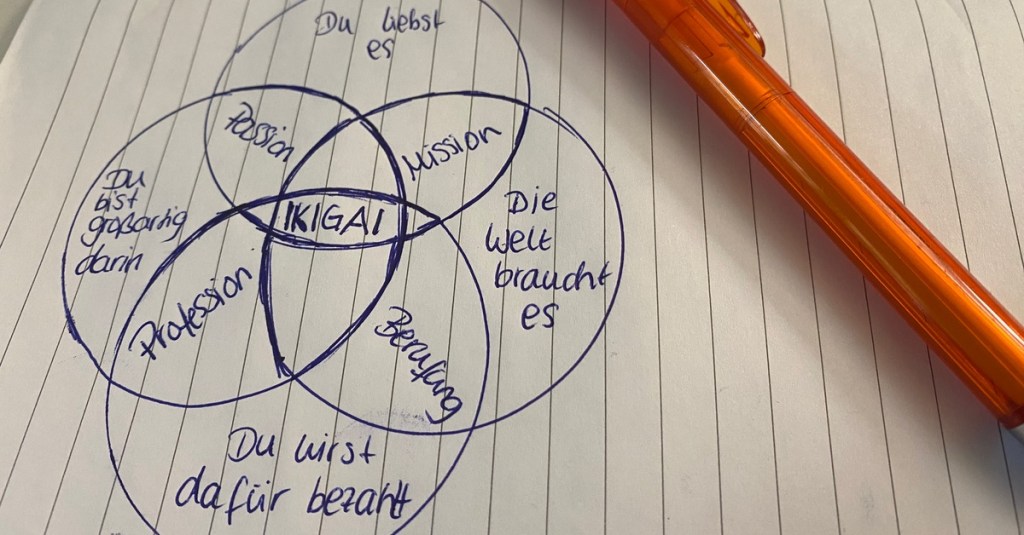 Du liebst
es
Passion
Mission
Du
bist
großartig
darin
IKIGAI
Die
Welt
braucht
es
Profession
Berufung
Du wirst
dafür bezahlt